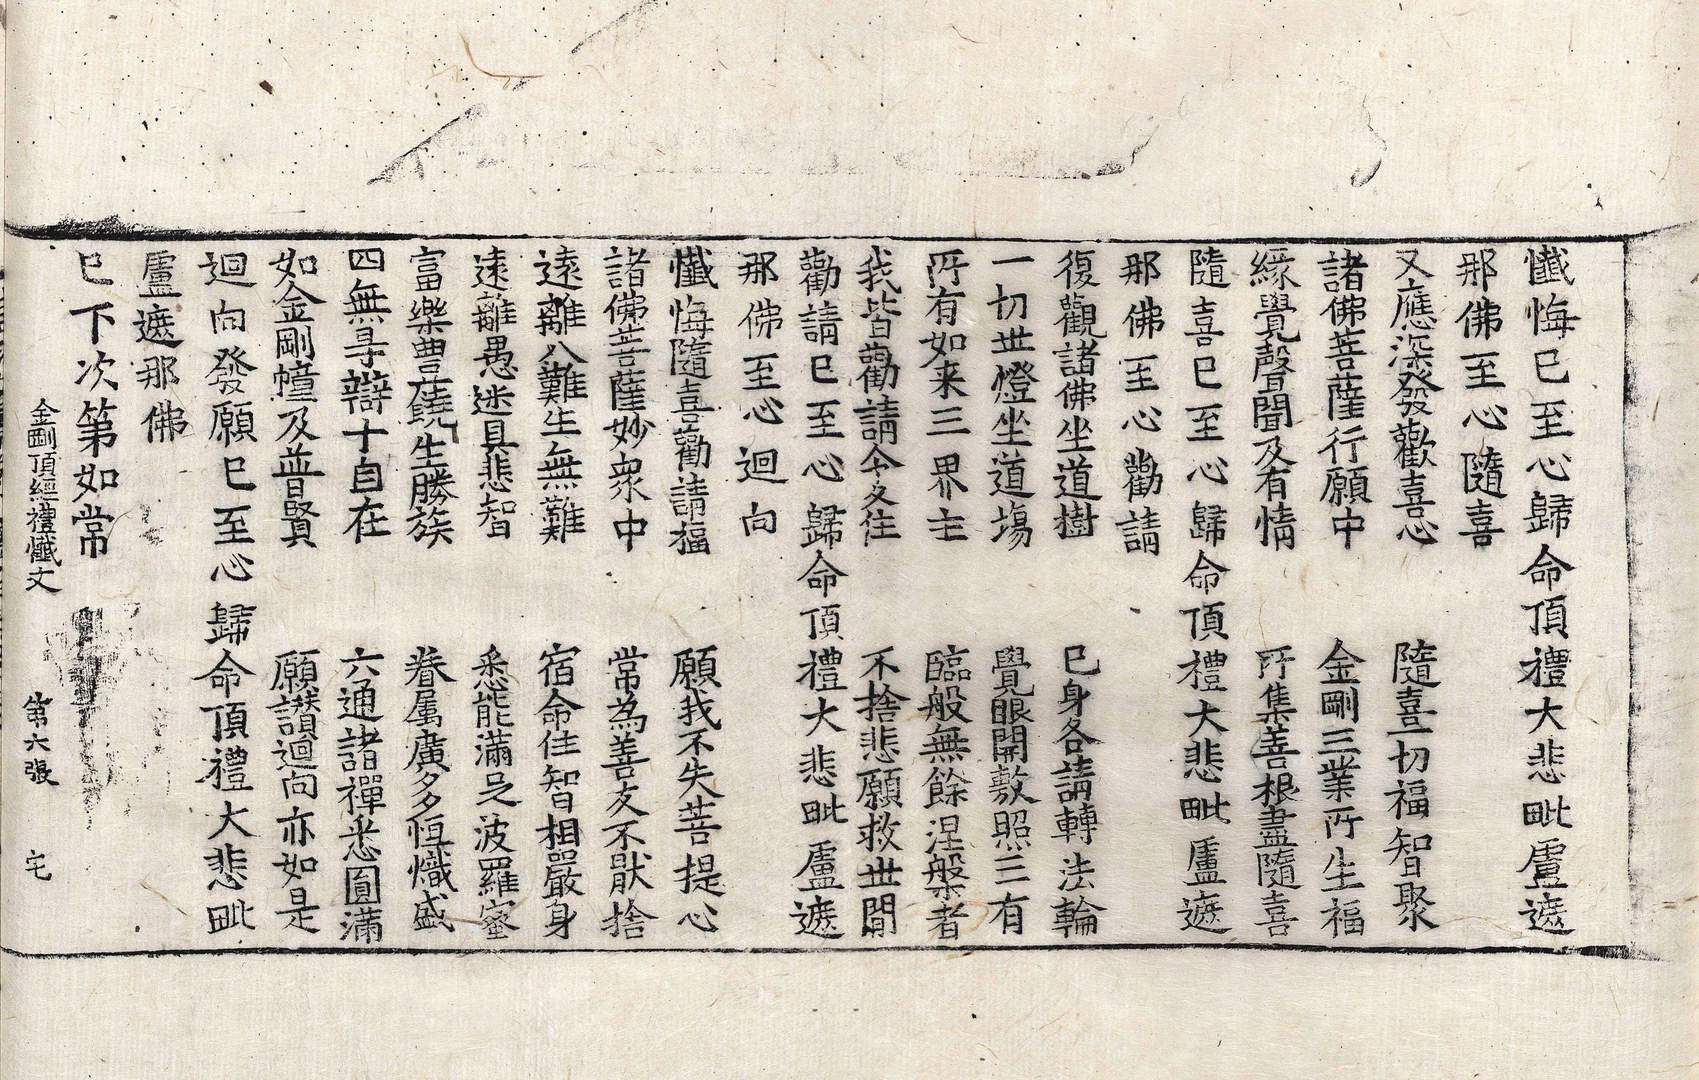 懺悔已至心歸命頂禮大悲毗盧遮
那佛至心隨喜
又應深發歡喜心　隨喜一切福智聚
諸佛菩薩行願中　金剛三業所生福
緣覺聲聞及有情　所集善根盡隨喜
隨喜已至心歸命頂禮大悲毗盧遮
那佛至心勸請
復觀諸佛坐道樹　已身各請轉法輪
一切世燈坐道場　覺眼開敷照三有
所有如来三界主　臨般無餘涅槃者
我皆勸請令久住　不捨悲願救世間
勸請已至心歸命頂禮大悲毗盧遮
那佛至心迴向
懺悔隨喜勸請福　願我不失菩提心
諸佛菩薩妙衆中　常為善友不猒捨
遠離八難生無難　宿命住智相嚴身
遠離愚迷具悲智　悉能滿足波羅蜜
富樂豊饒生勝族　眷屬廣多恒熾盛
四無㝵辯十自在　六通諸禪悉圓滿
如金剛幢及普賢　願讃迴向亦如是
迴向發願已至心歸命頂禮大悲毗
盧遮那佛
已下次第如常
金剛頂經禮懺文　第六張　宅